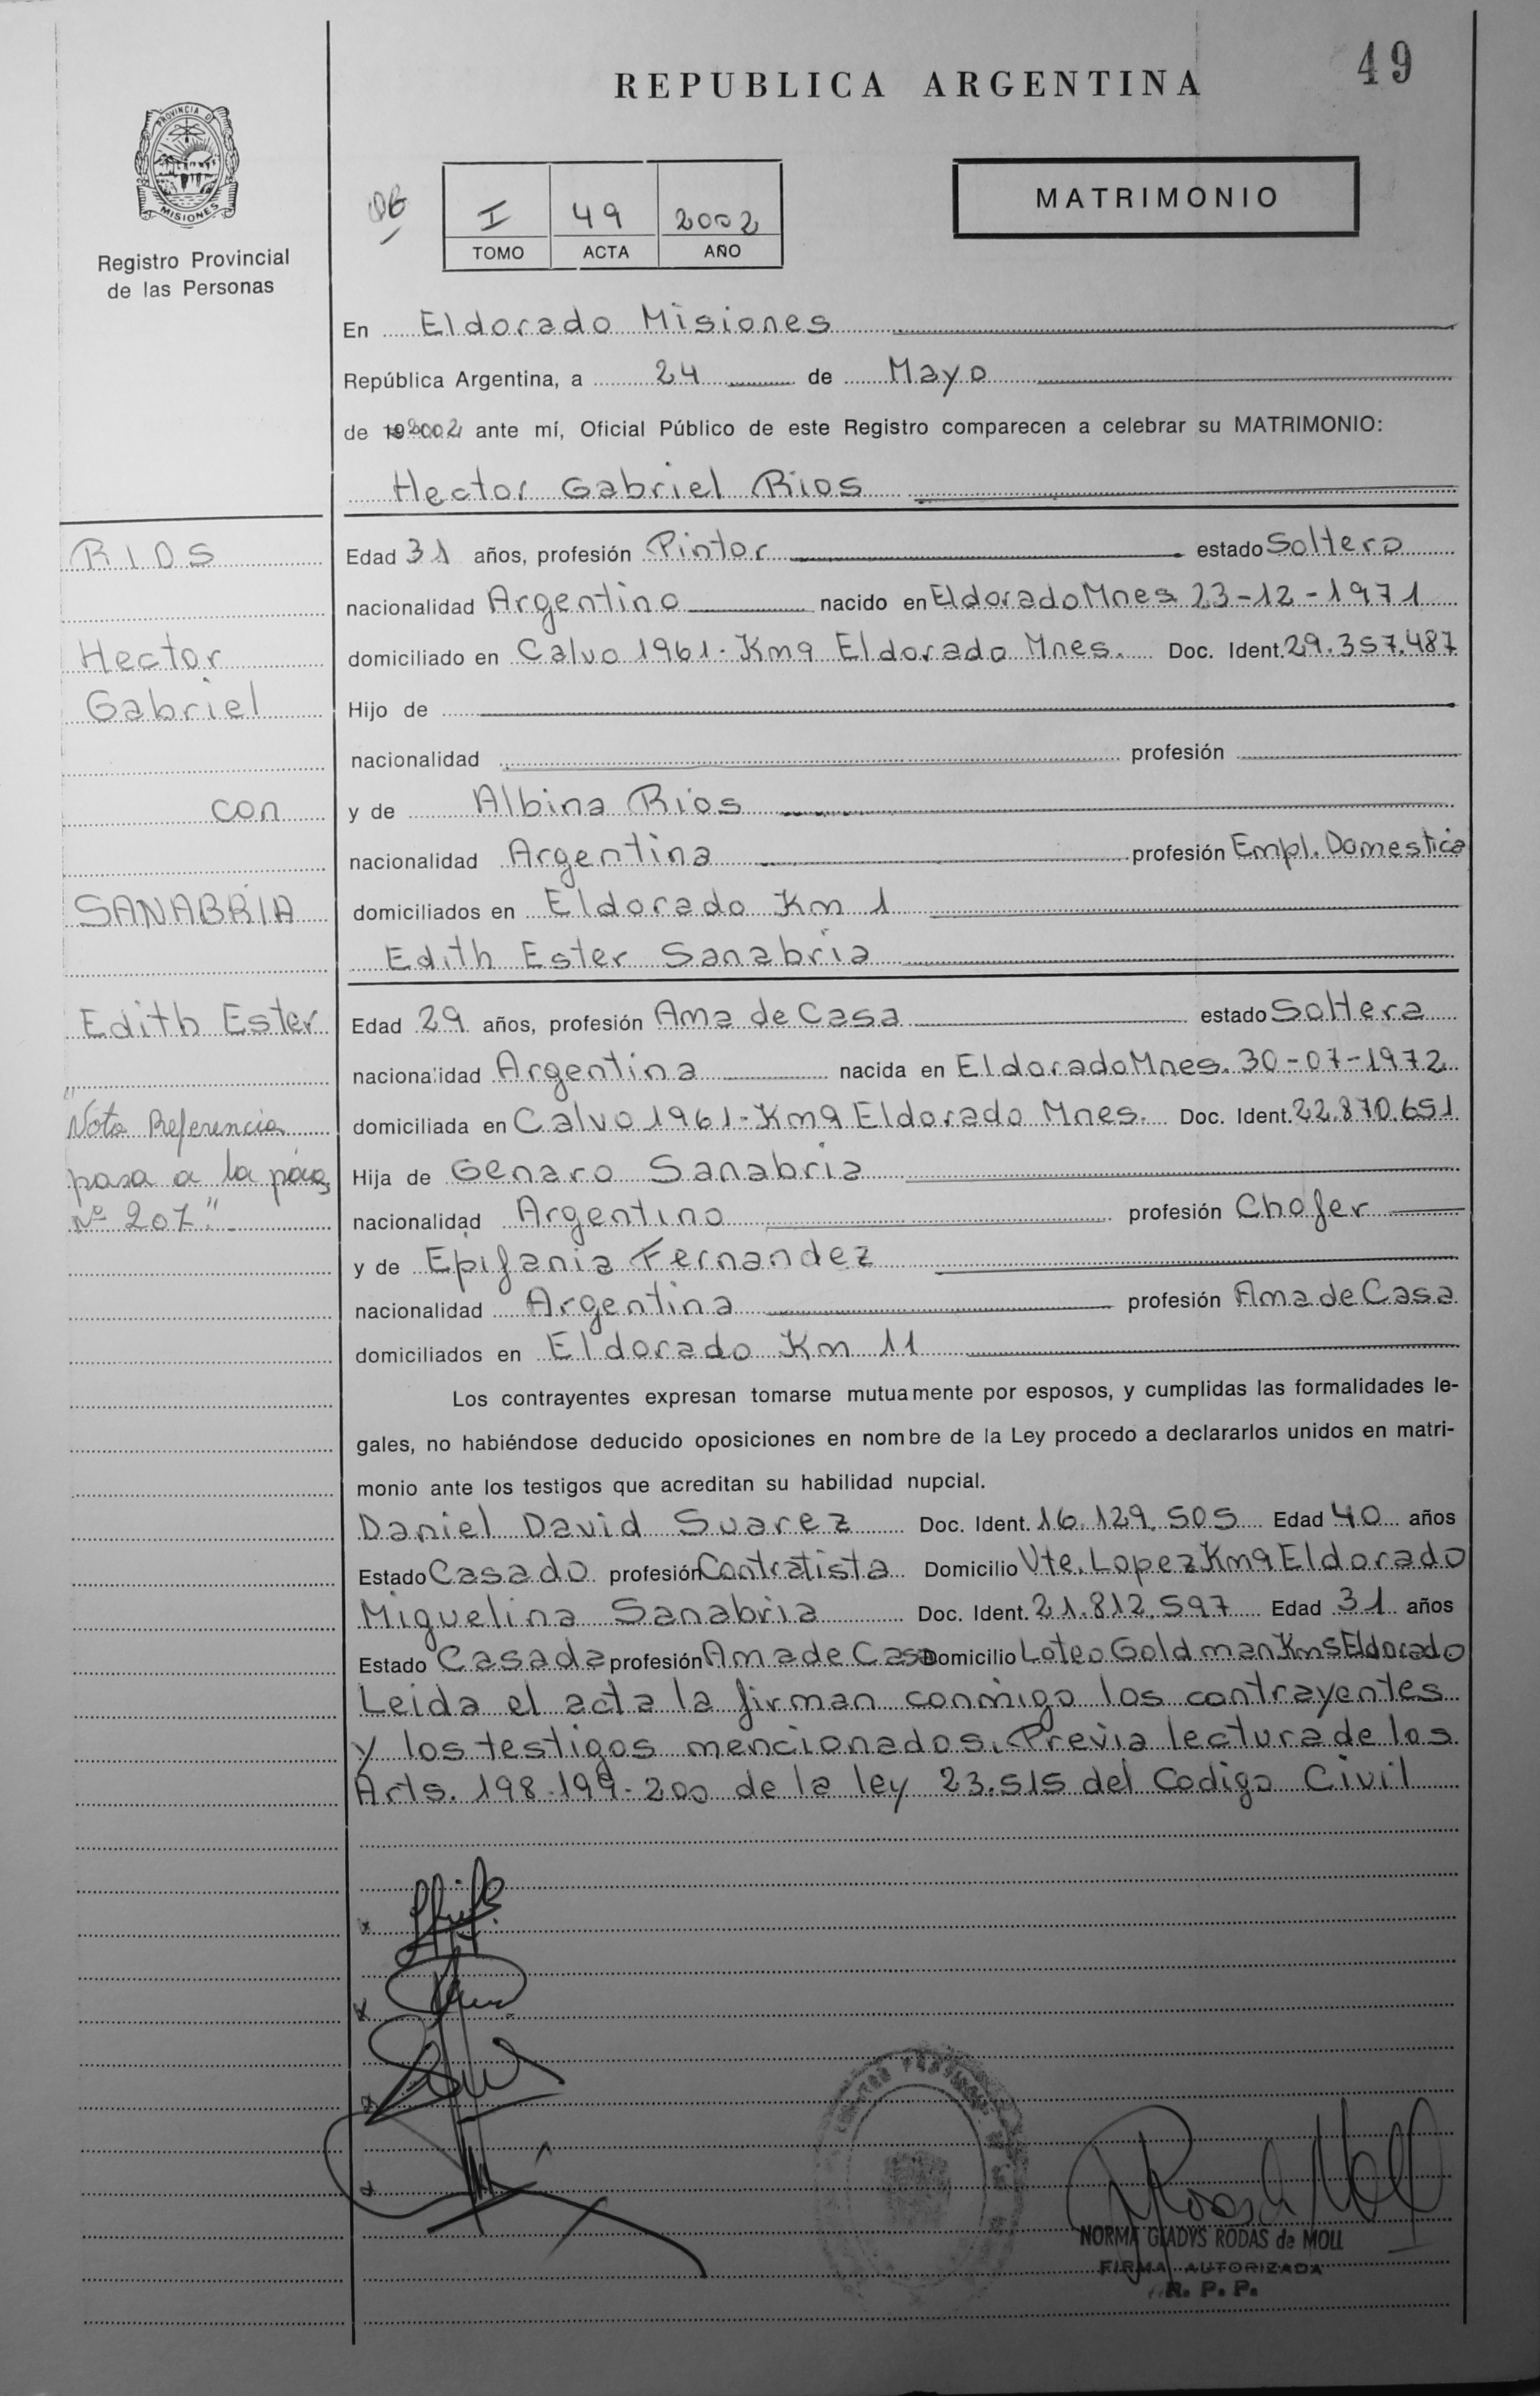 49
REPUBLICA ARGENTINA
PROVINCIA DE
MISIONES
Registro Provincial
de las Personas
I 49 2002
TOMO ACTA AÑO
MATRIMONIO
En Eldorado Misiones
República Argentina, a 24 de Mayo
de 192002 ante mí, Oficial Público de este Registro comparecen a celebrar su MATRIMONIO:
Hector Gabriel Rios
RIOS
Hector
Gabriel
con
SANABRIA
Edith Ester
"Nota Referencia
pasa a la pág
Nº 207"
Edad 31 años, profesión Pintor estado Soltero
nacionalidad Argentino nacido en Eldorado Mnes 23-12-1971
domiciliado en Calvo 1961. Km9 Eldorado Mnes. Doc. Ident. 29.357.487
Hijo de
nacionalidad profesión
y de Albina Rios
nacionalidad Argentina profesión Empl. Domestica
domiciliados en Eldorado Km 1
Edith Ester Sanabria
Edad 29 años, profesión Ama de Casa estado Soltera
nacionalidad Argentina nacida en Eldorado Mnes. 30-07-1972
domiciliada en Calvo 1961-Km9 Eldorado Mnes. Doc. Ident. 22.870.651
Hija de Genaro Sanabria
nacionalidad Argentino profesión Chofer
y de Epifania Fernandez
nacionalidad Argentina profesión Ama de Casa
domiciliados en Eldorado Km 11
Los contrayentes expresan tomarse mutuamente por esposos, y cumplidas las formalidades le-
gales, no habiéndose deducido oposiciones en nombre de la Ley procedo a declararlos unidos en matri-
monio ante los testigos que acreditan su habilidad nupcial.
Daniel David Suarez Doc. Ident. 16.129.505 Edad 40 años
Estado Casado profesión Contratista Domicilio Vte. Lopez Km9 Eldorado
Miguelina Sanabria Doc. Ident. 21.812.597 Edad 31 años
Estado Casada profesión Ama de Casa Domicilio Loteo Goldman Km5 Eldorado
Leida el acta la firman conmigo los contrayentes
y los testigos mencionados. Previa lectura de los
Arts. 198-199-200 de la ley 23.515 del Codigo Civil
NORMA GLADYS RODAS de MOLL
FIRMA AUTORIZADA
R. P. P.